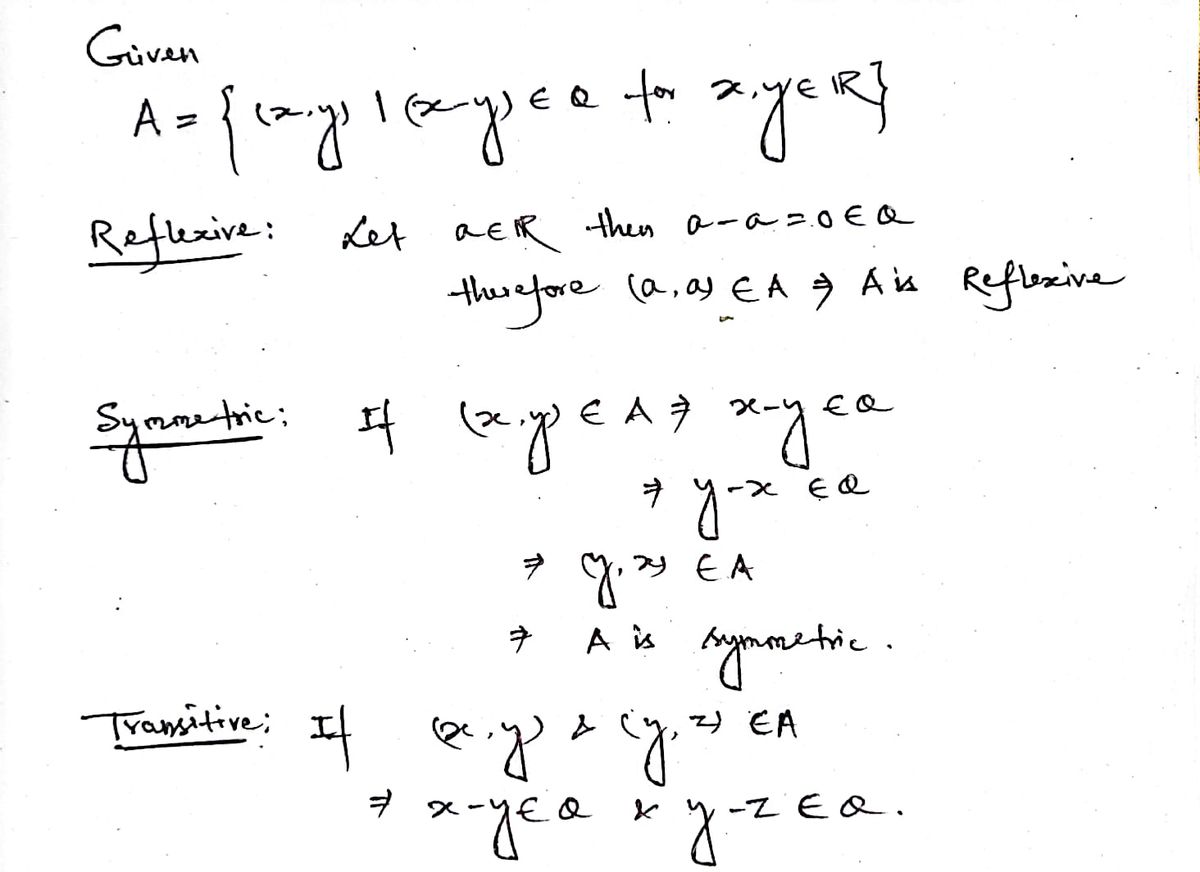 Given
A = { (x,y) | (x-y) ∈ Q for x,y ∈ ℝ}
Reflexive: Let a ∈ ℝ then a-a=0 ∈ Q
therefore (a,a) ∈ A ⇒ A is Reflexive
Symmetric: If (x,y) ∈ A ⇒ x-y ∈ Q
⇒ y-x ∈ Q
⇒ (y,x) ∈ A
⇒ A is symmetric.
Transitive: If (x,y) & (y,z) ∈ A
⇒ x-y ∈ Q & y-z ∈ Q.